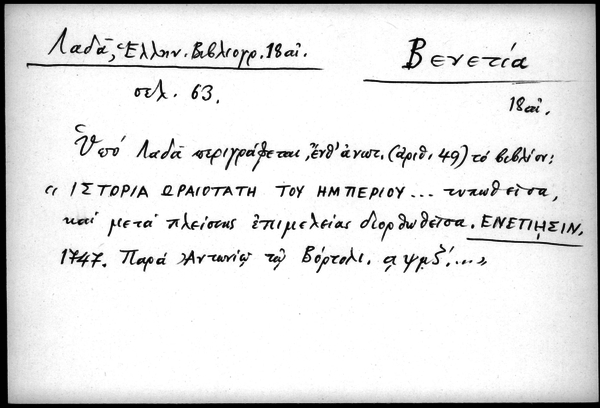 Λαδᾶ, Ἑλλην. Βιβλιογρ. 18αἰ.
σελ. 63.
Βενετία
18αἰ.
Ὑπό Λαδᾶ περιγράφεται, ἔνθ' ἀνωτ. (ἀριθ. 49) τό βιβλίον:
« ΙΣΤΟΡΙΑ ΩΡΑΙΟΤΑΤΗ ΤΟΥ ΗΜΠΕΡΙΟΥ... τυπωθεῖσα,
καί μετά πλείστης ἐπιμελείας διορθωθεῖσα. ΕΝΕΤΙῌΣΙΝ,
1747. Παρά Ἀντωνίῳ τῷ Βόρτολι. αψμζ΄... »